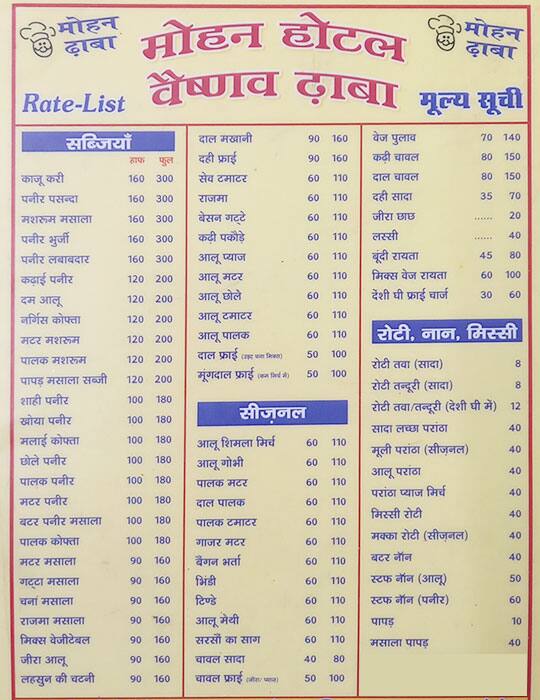 मोहन ढ़ाबा
मोहन होटल
वैष्णव ढ़ाबा
मोहन ढ़ाबा
Rate-List
मूल्य सूची
सब्जियाँ
हाफ फुल
काजू करी 160 300
पनीर पसन्दा 160 300
मशरूम मसाला 160 300
पनीर भुर्जी 160 300
पनीर लबाबदार 160 300
कढ़ाई पनीर 120 200
दम आलू 120 200
नर्गिस कोफ्ता 120 200
मटर मशरूम 120 200
पालक मशरूम 120 200
पापड़ मसाला सब्जी 120 200
शाही पनीर 100 180
खोया पनीर 100 180
मलाई कोफ्ता 100 180
छोले पनीर 100 180
पालक पनीर 100 180
मटर पनीर 100 180
बटर पनीर मसाला 100 180
पालक कोफ्ता 100 180
मटर मसाला 90 160
गट्टा मसाला 90 160
चनां मसाला 90 160
राजमा मसाला 90 160
मिक्स वेजीटेबल 90 160
जीरा आलू 90 160
लहसुन की चटनी 90 160
दाल मखानी 90 160
दही फ्राई 90 160
सेव टमाटर 60 110
राजमा 60 110
बेसन गट्टे 60 110
कढ़ी पकौड़े 60 110
आलू प्याज 60 110
आलू मटर 60 110
आलू छोले 60 110
आलू टमाटर 60 110
आलू पालक 60 110
दाल फ्राई (उड़द चना मिक्स) 50 100
मूंगदाल फ्राई (कम मिर्च में) 50 100
सीज़नल
आलू शिमला मिर्च 60 110
आलू गोभी 60 110
पालक मटर 60 110
दाल पालक 60 110
पालक टमाटर 60 110
गाजर मटर 60 110
बैंगन भर्ता 60 110
भिंडी 60 110
टिण्डे 60 110
आलू मेथी 60 110
सरसों का साग 60 110
चावल सादा 40 80
चावल फ्राई (जीरा/ प्याज) 50 100
वेज पुलाव 70 140
कढ़ी चावल 80 150
दाल चावल 80 150
दही सादा 35 70
जीरा छाछ ...... 20
लस्सी ...... 40
बूंदी रायता 45 80
मिक्स वेज रायता 60 100
देशी घी फ्राई चार्ज 30 60
रोटी, नान, मिस्सी
रोटी तवा (सादा) 8
रोटी तन्दूरी (सादा) 8
रोटी तवा/तन्दूरी (देशी घी में) 12
सादा लच्छा परांठा 40
मूली परांठा (सीज़नल) 40
आलू परांठा 40
परांठा प्याज मिर्च 40
मिस्सी रोटी 40
मक्का रोटी (सीज़नल) 40
बटर नॉन 40
स्टफ नॉन (आलू) 50
स्टफ नॉन (पनीर) 60
पापड़ 10
मसाला पापड़ 40